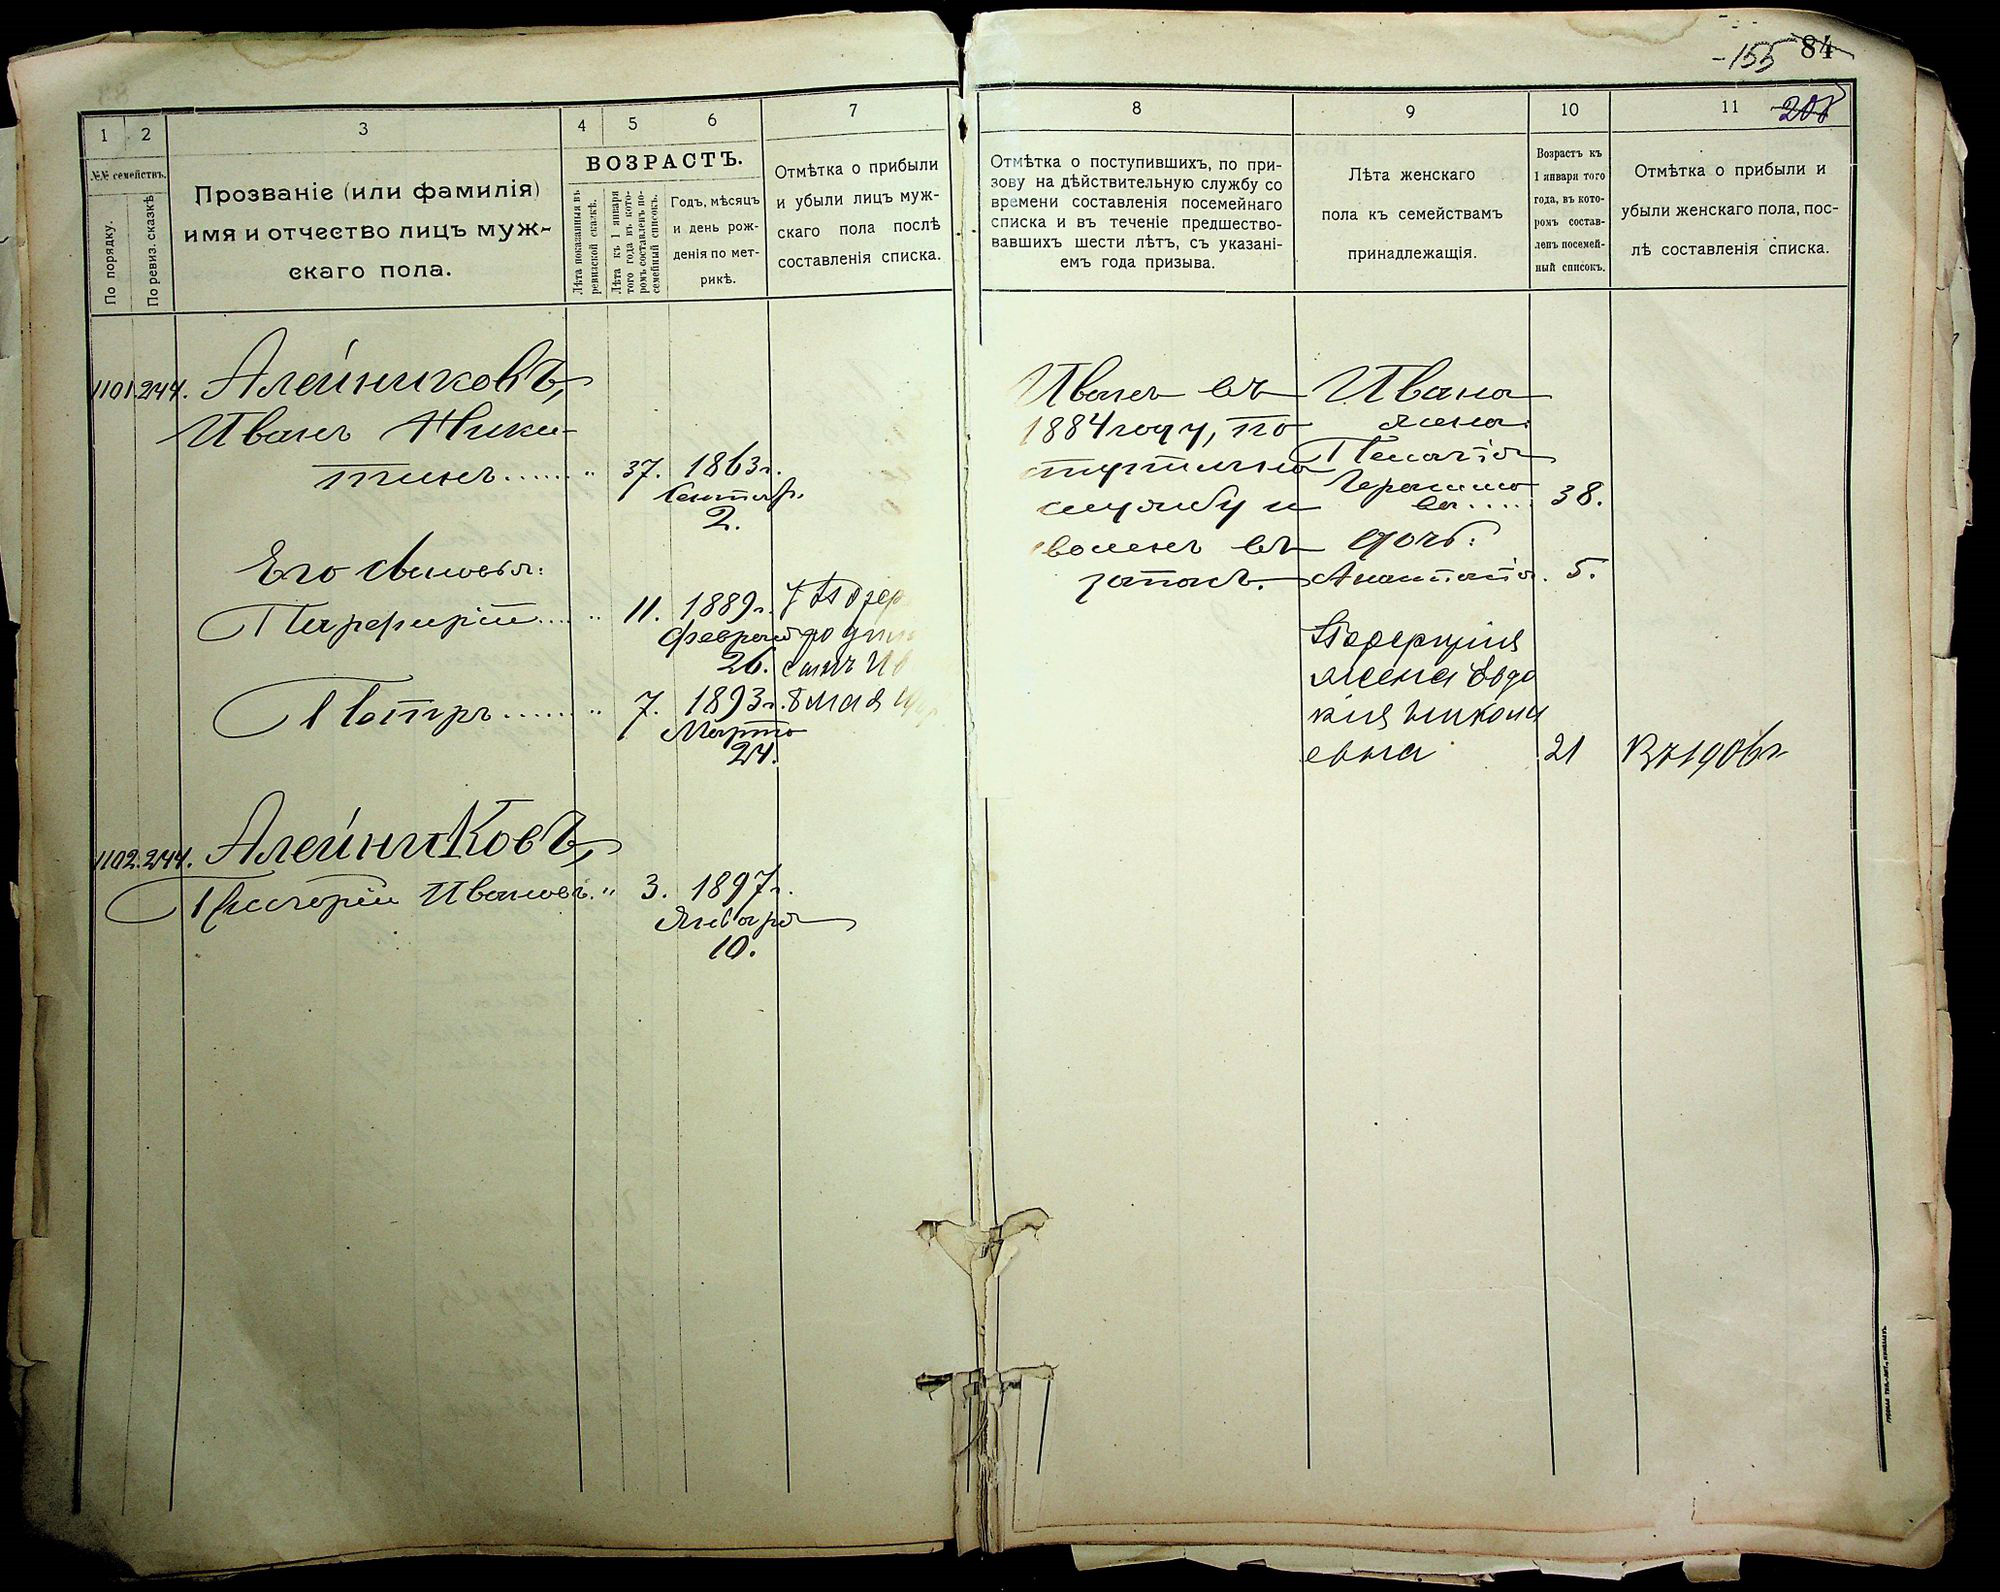 155 84
208
1
2
3
4
5
6
7
№№ семействъ.
По порядку.
По ревиз. сказкѣ
Прозваніе (или фамилія)
имя и отчество лицъ муж-
скаго пола.
ВОЗРАСТЪ.
Лѣта показанныя въ
ревизской сказкѣ.
Лѣта къ 1 января
того года въ кото-
ромъ составленъ по-
семейный списокъ.
Годъ, мѣсяцъ
и день рож-
денія по мет-
рикѣ.
Отмѣтка о прибыли
и убыли лицъ муж-
скаго пола послѣ
составленія списка.
1101. 244. Алейниковъ,
Иванъ Ники-
тинъ...... " 37. 1863 г.
Сентяб.
2.
Его сыновья:
Парфирій.... " 11. 1889 г.
февраля
26.
Петръ....... " 7. 1893 г. 8 мая
Марта
24.
1102. 244. Алейниковъ,
Григорій Ивановъ. " 3. 1897 г.
Января
10.
8
9
10
11
Отмѣтка о поступившихъ, по при-
зову на дѣйствительную службу со
времени составленія посемейнаго
списка и въ теченіе предшество-
вавшихъ шести лѣтъ, съ указані-
емъ года призыва.
Лѣта женскаго
пола къ семействамъ
принадлежащія.
Возрастъ къ
1 января того
года, въ кото-
ромъ состав-
ленъ посемей-
ный списокъ.
Отмѣтка о прибыли и
убыли женскаго пола, пос-
лѣ составленія списка.
Иванъ въ
1884 году, по
ступилъ на
службу и
воленъ въ
запасъ.
Ивана
жена
Пелагія
Герасимо
ва..... 38.
дочь:
Анастасія. 5.
Парфирія
жена Евдо
кія Никола
евна 21 Въ 1906 г